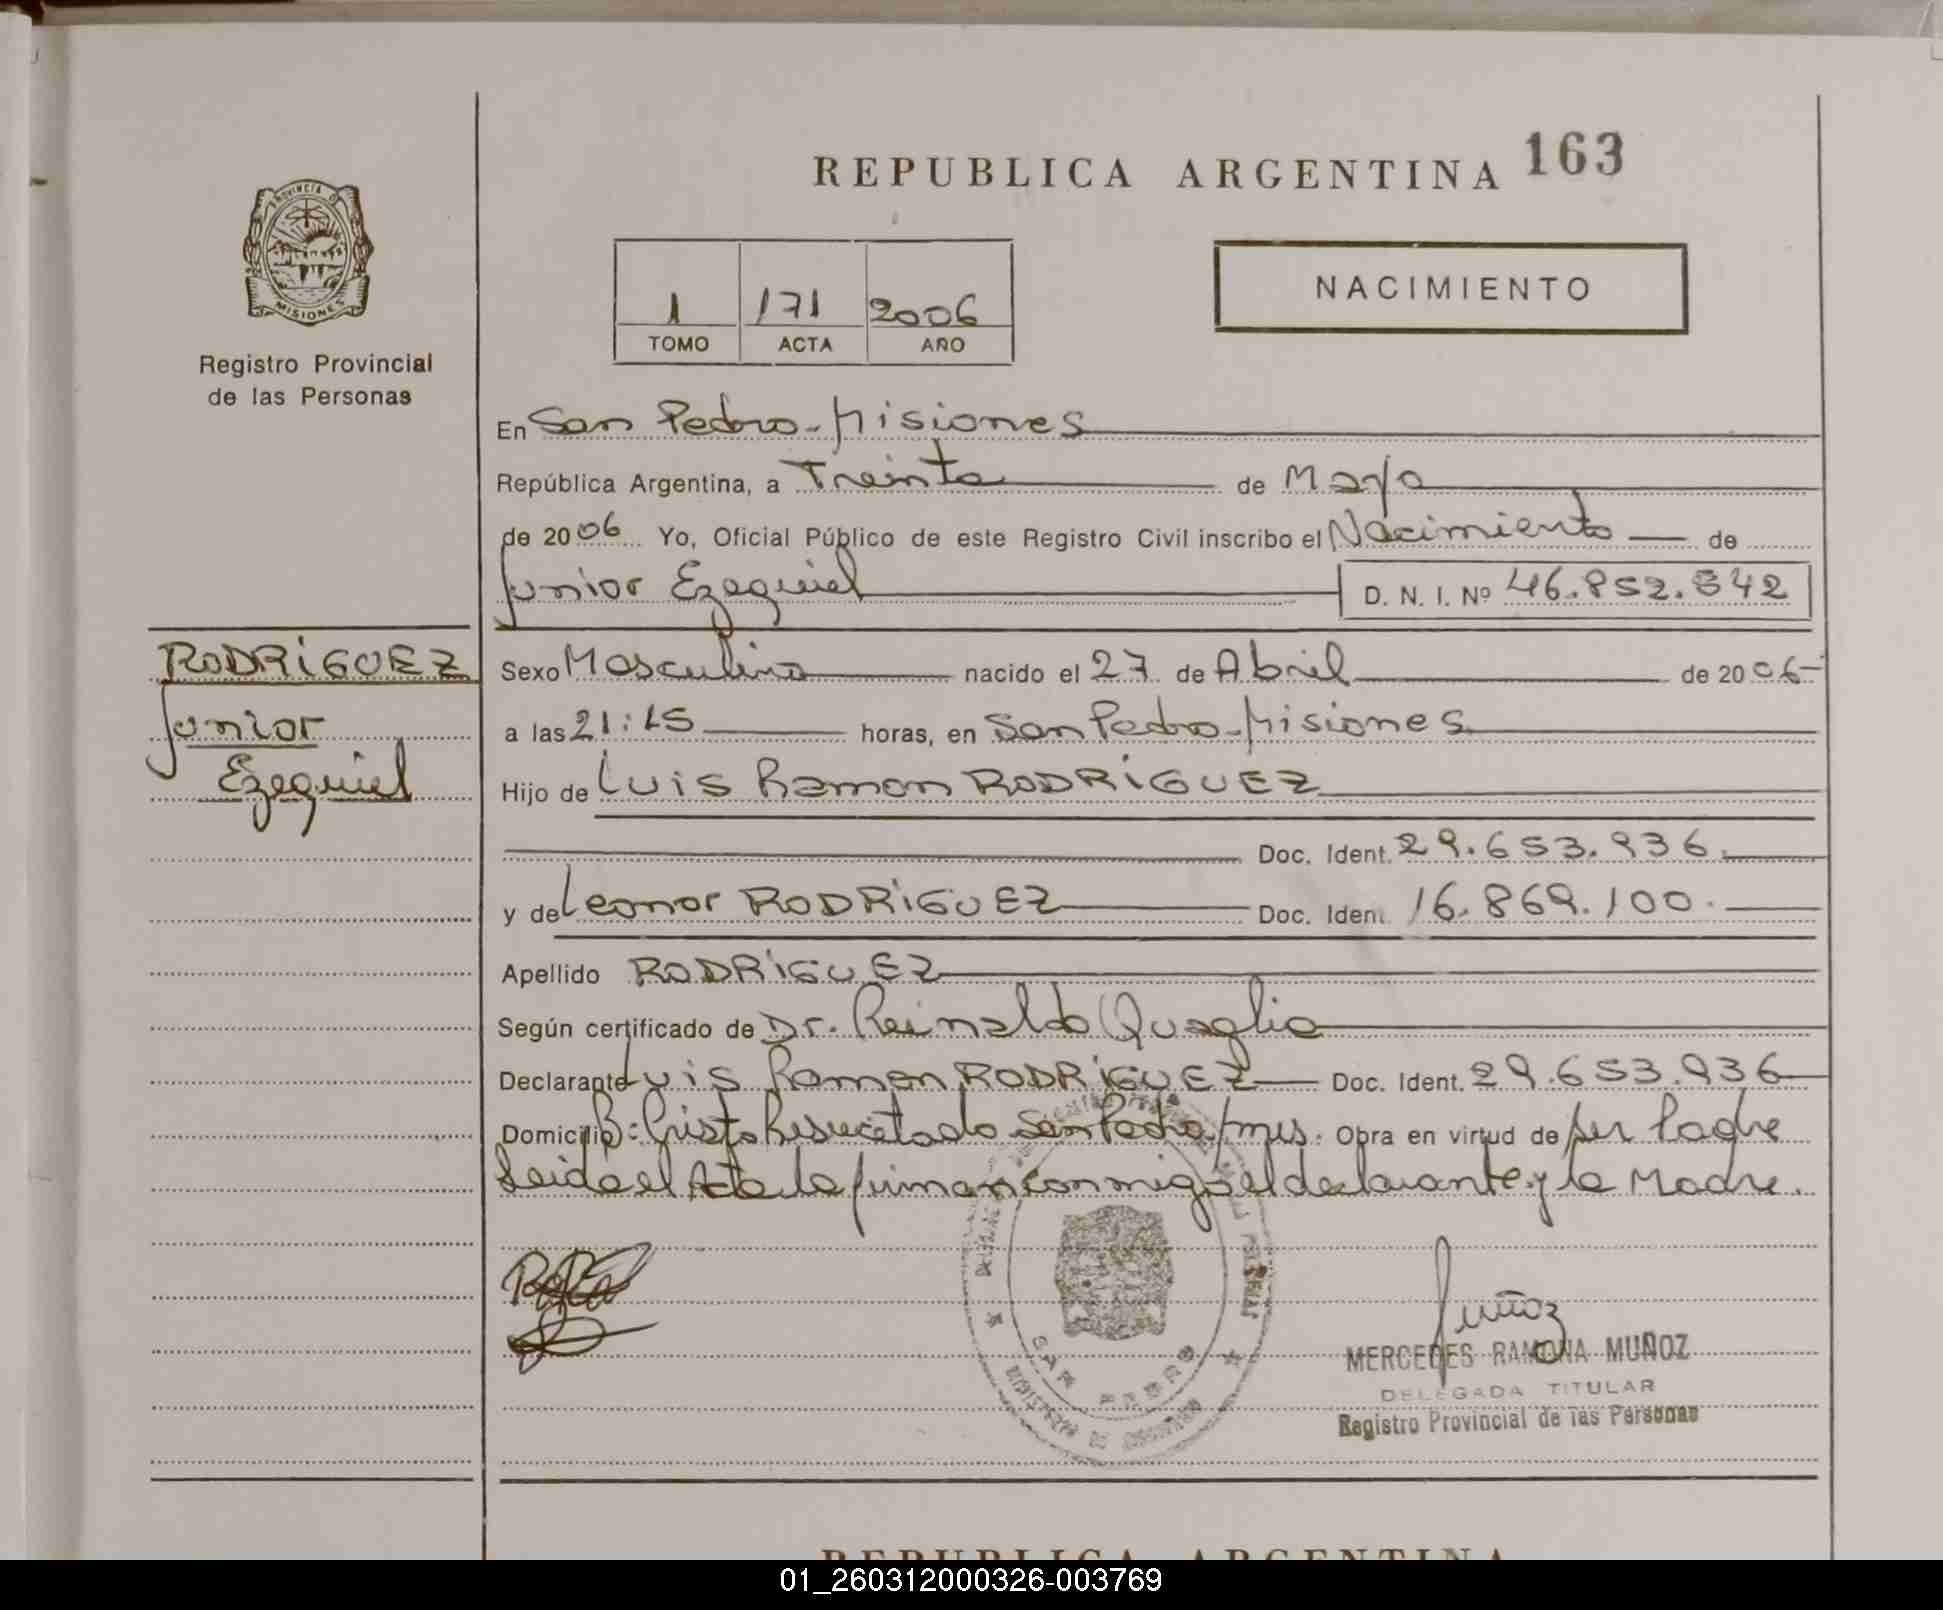 REPUBLICA ARGENTINA 163
PROVINCIA DE
MISIONES
Registro Provincial
de las Personas
1 171 2006
TOMO ACTA AÑO
NACIMIENTO
En San Pedro - Misiones
República Argentina, a Treinta de Mayo
de 2006 Yo, Oficial Público de este Registro Civil inscribo el Nacimiento de
Junior Ezequiel D. N. I. Nº 46.852.842
RODRÍGUEZ
Junior
Ezequiel
Sexo Masculino nacido el 27 de Abril de 2006-
a las 21:15 horas, en San Pedro - Misiones
Hijo de Luis Ramon RODRÍGUEZ
Doc. Ident. 29.653.936.
y de Leonor RODRÍGUEZ Doc. Ident. 16.869.100.
Apellido RODRÍGUEZ
Según certificado de Dr. Reinaldo Quaglia
Declarante Luis Ramon RODRÍGUEZ Doc. Ident. 29.653.936
Domicilio B: Cristo Resucetado San Pedro, mis. Obra en virtud de ser Padre
Leida el Acta la firman conmigo el declarante y la Madre.
SAN PEDRO
Muñoz
MERCEDES RAMONA MUÑOZ
DELEGADA TITULAR
Registro Provincial de las Personas
REPUBLICA ARGENTINA
01_260312000326-003769